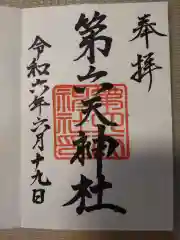 奉拝
第六天神社
令和六年六月十九日